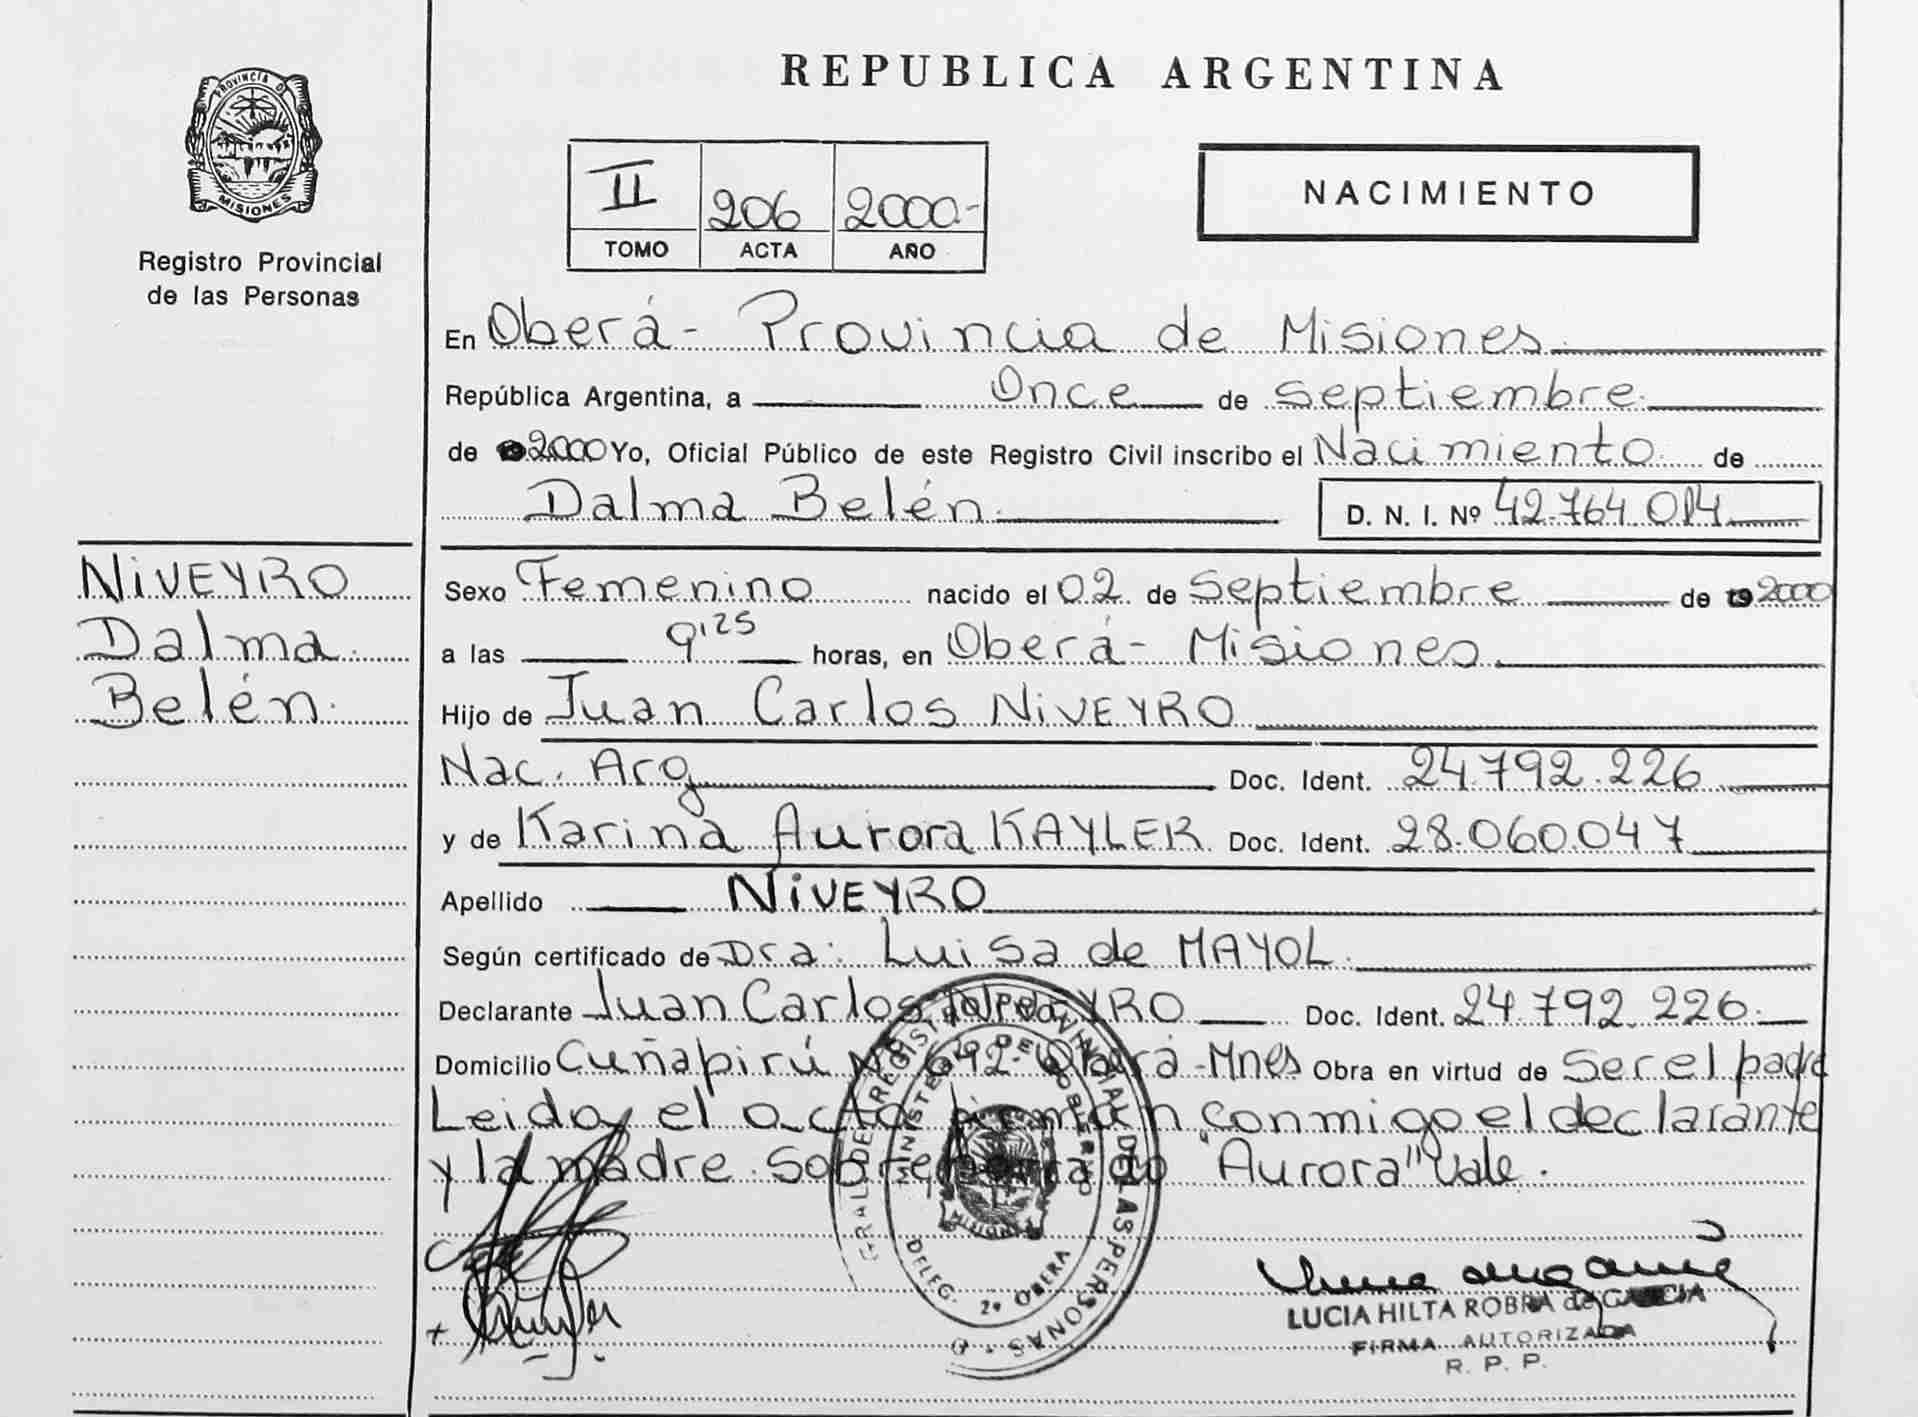 PROVINCIA DE
MISIONES
Registro Provincial
de las Personas
NiVEYRO
Dalma
Belén.
REPUBLICA ARGENTINA
II 206 2000.-
TOMO ACTA AÑO
NACIMIENTO
En Oberá - Provincia de Misiones.
República Argentina, a Once de septiembre.
de 2000 Yo, Oficial Público de este Registro Civil inscribo el Nacimiento de
Dalma Belén. D. N. I. Nº 42.764.014
Sexo Femenino nacido el 02 de Septiembre de 2000
a las 9'25 horas, en Oberá - Misiones.
Hijo de Juan Carlos NiVEYRO
Nac. Arg Doc. Ident. 24.792.226
y de Karina Aurora KAYLER. Doc. Ident. 28.060.047
Apellido NiVEYRO
Según certificado de Dra: Luisa de MAYOL.
Declarante Juan Carlos NiVEYRO Doc. Ident. 24.792.226.
Domicilio Cuñapirú Nº 642 - Oberá - Mnes Obra en virtud de Ser el padre
Leida el acta firman conmigo el declarante
y la madre. Sobreborrado "Aurora" Vale.
GRAL. DEL REGISTRO PROVINCIAL DE LAS PERSONAS
MINISTERIO DE GOBIERNO
MISIONES
DELEG. 2º OBERA
LUCIA HILTA ROBRA de GARCIA
FIRMA AUTORIZADA
R. P. P.